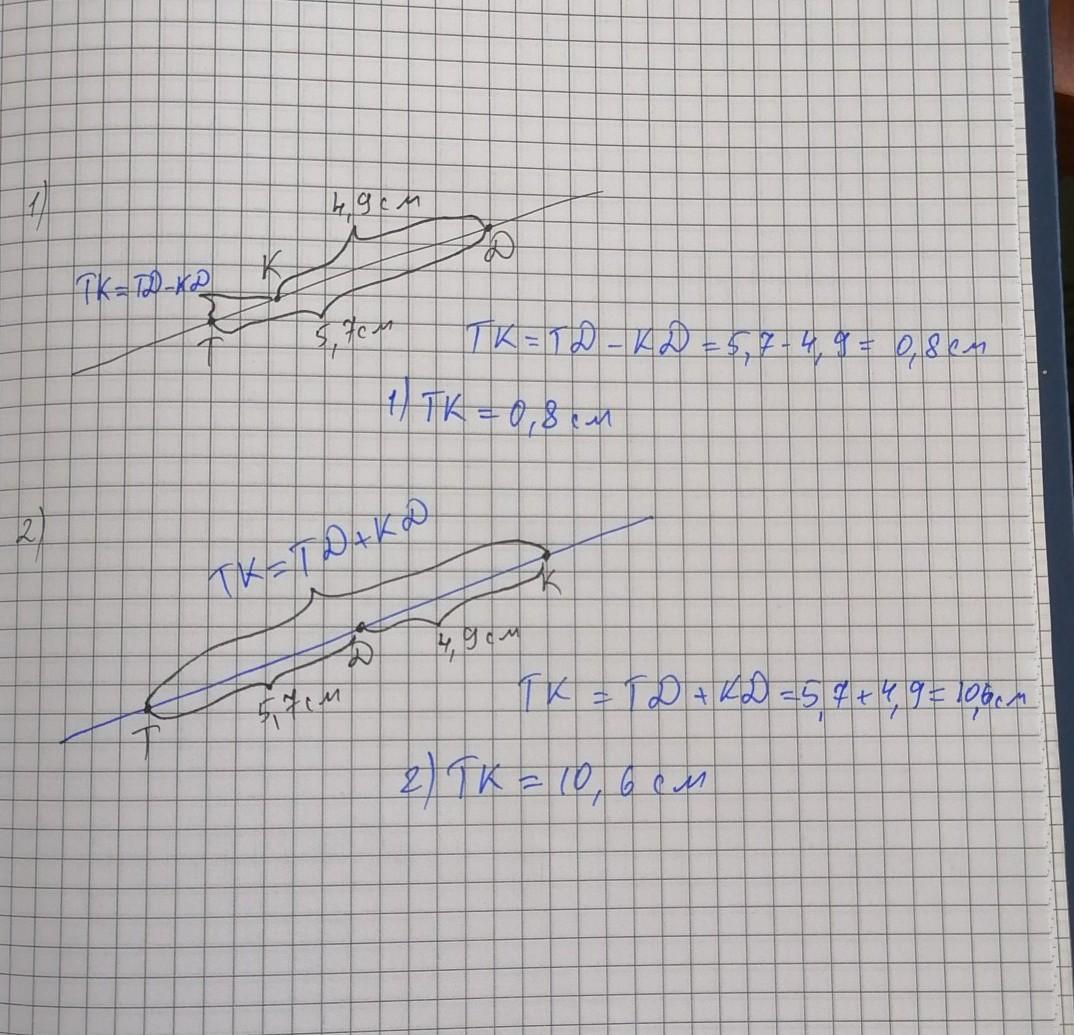 1)
4,9 см
K
D
TK=TD-KD
T
5,7см
TK = TD - KD = 5,7 - 4,9 = 0,8 см
1) TK = 0,8 см
2)
TK = TD + KD
K
D
4,9 см
5,7 см
T
TK = TD + KD = 5,7 + 4,9 = 10,6 см
2) TK = 10,6 см